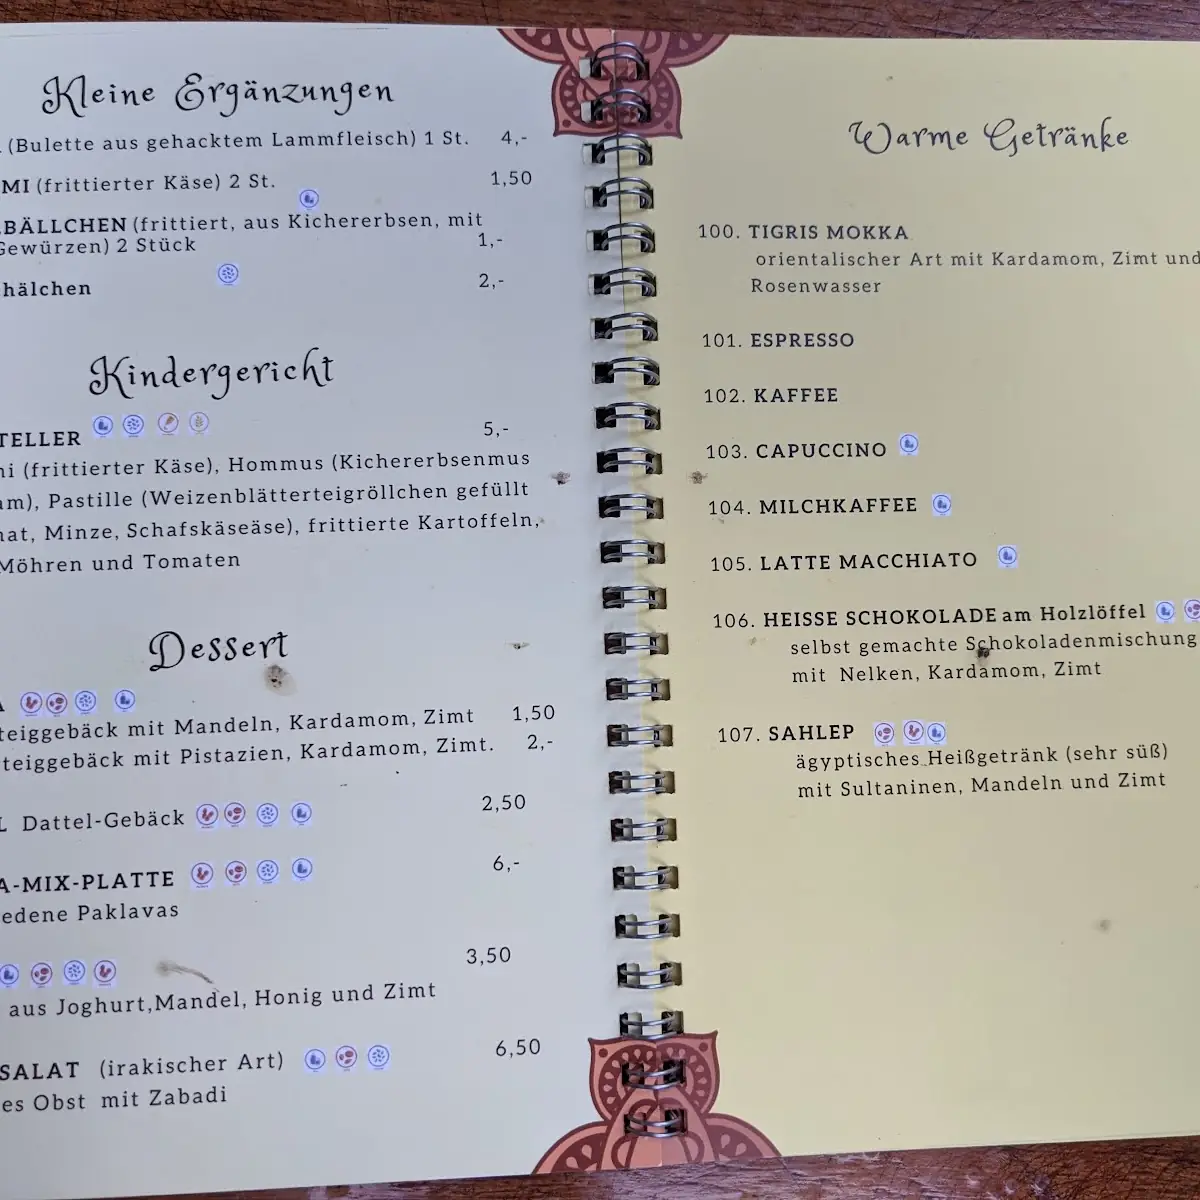 Kleine Ergänzungen
(Bulette aus gehacktem Lammfleisch) 1 St. 4,-
MI (frittierter Käse) 2 St. 1,50
BÄLLCHEN (frittiert, aus Kichererbsen, mit
Gewürzen) 2 Stück 1,-
hälchen 2,-
Kindergericht
TELLER 5,-
mi (frittierter Käse), Hommus (Kichererbsenmus
am), Pastille (Weizenblätterteigröllchen gefüllt
nat, Minze, Schafskäseäse), frittierte Kartoffeln,
Möhren und Tomaten
Dessert
A
teiggebäck mit Mandeln, Kardamom, Zimt 1,50
teiggebäck mit Pistazien, Kardamom, Zimt. 2,-
L Dattel-Gebäck 2,50
A-MIX-PLATTE 6,-
edene Paklavas
3,50
aus Joghurt,Mandel, Honig und Zimt
SALAT (irakischer Art) 6,50
es Obst mit Zabadi
Warme Getränke
100. TIGRIS MOKKA
orientalischer Art mit Kardamom, Zimt und
Rosenwasser
101. ESPRESSO
102. KAFFEE
103. CAPUCCINO
104. MILCHKAFFEE
105. LATTE MACCHIATO
106. HEISSE SCHOKOLADE am Holzlöffel
selbst gemachte Schokoladenmischung
mit Nelken, Kardamom, Zimt
107. SAHLEP
ägyptisches Heißgetränk (sehr süß)
mit Sultaninen, Mandeln und Zimt